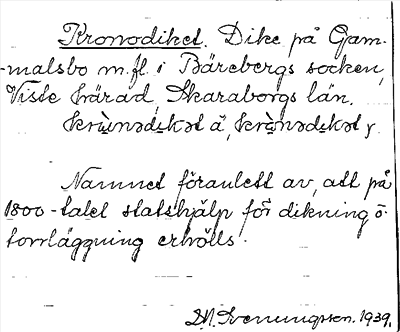 Kronodiket. Dike på Gam-
malsbo m.fl. i Bärebergs socken,
Viste härad, Skaraborgs län.
å, y.
Namnet föranlett av, att på
1800-talet statshjälp för dikning o.
torrläggning erhölls.
Sveningsson. 1939.